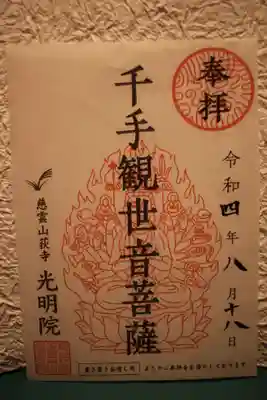 奉拝
令和四年八月十八日
千手観世音菩薩
慈雲山荻寺
光明院